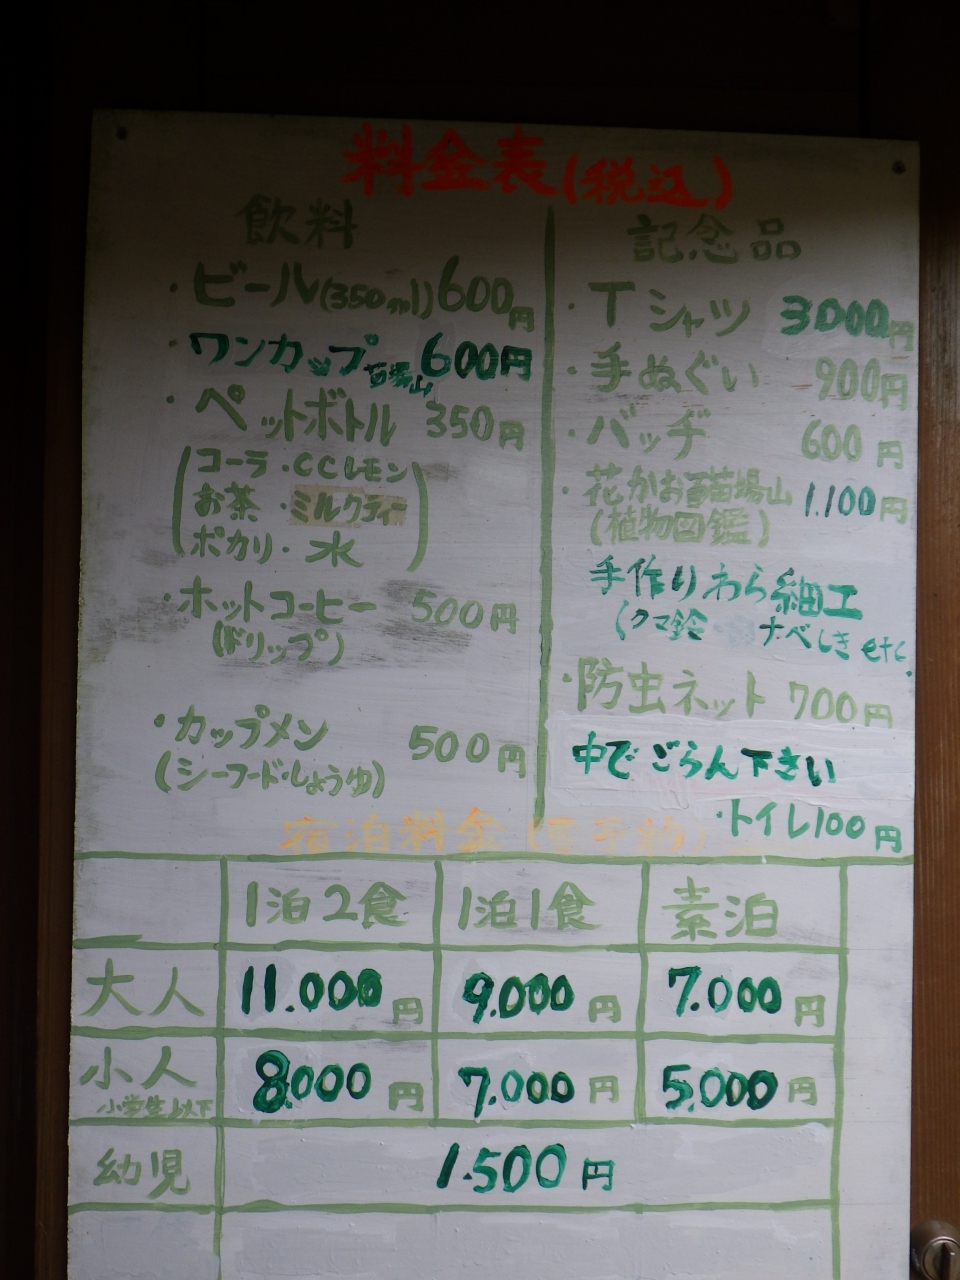 料金表(税込)
飲料
・ビール(350ml)600円
・ワンカップ苗場山600円
・ペットボトル 350円
(コーラ・CCレモン
お茶・ミルクティー
ポカリ・水)
・ホットコーヒー 500円
(ドリップ)
・カップメン 500円
(シーフード・しょうゆ)
記念品
・Tシャツ 3000円
・手ぬぐい 900円
・バッヂ 600円
・花かおる苗場山 1.100円
(植物図鑑)
手作りわら細工
(クマ鈴 ナベしき etc.
・防虫ネット 700円
中でごらん下さい
・トイレ100円
宿泊料金(要予約)
1泊2食 1泊1食 素泊
大人 11.000円 9.000円 7.000円
小人 8.000円 7.000円 5.000円
小学生以下
幼児 1.500円